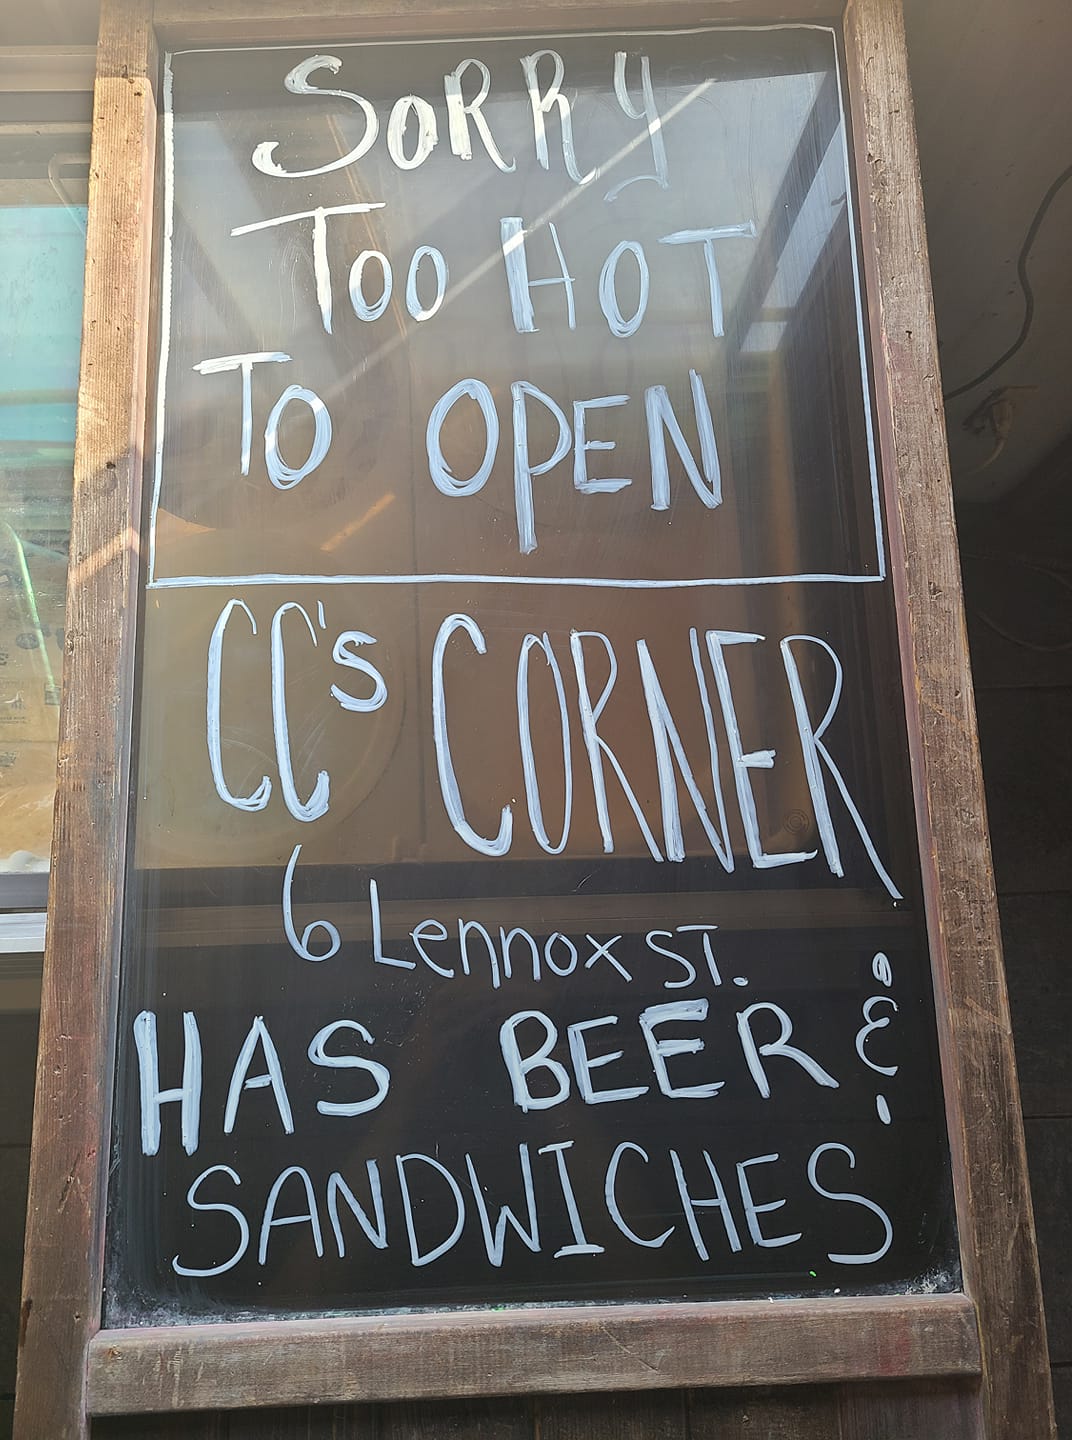 SORRY
TOO HOT
TO OPEN
CC's CORNER
6 Lennox ST.
HAS BEER &
SANDWICHES